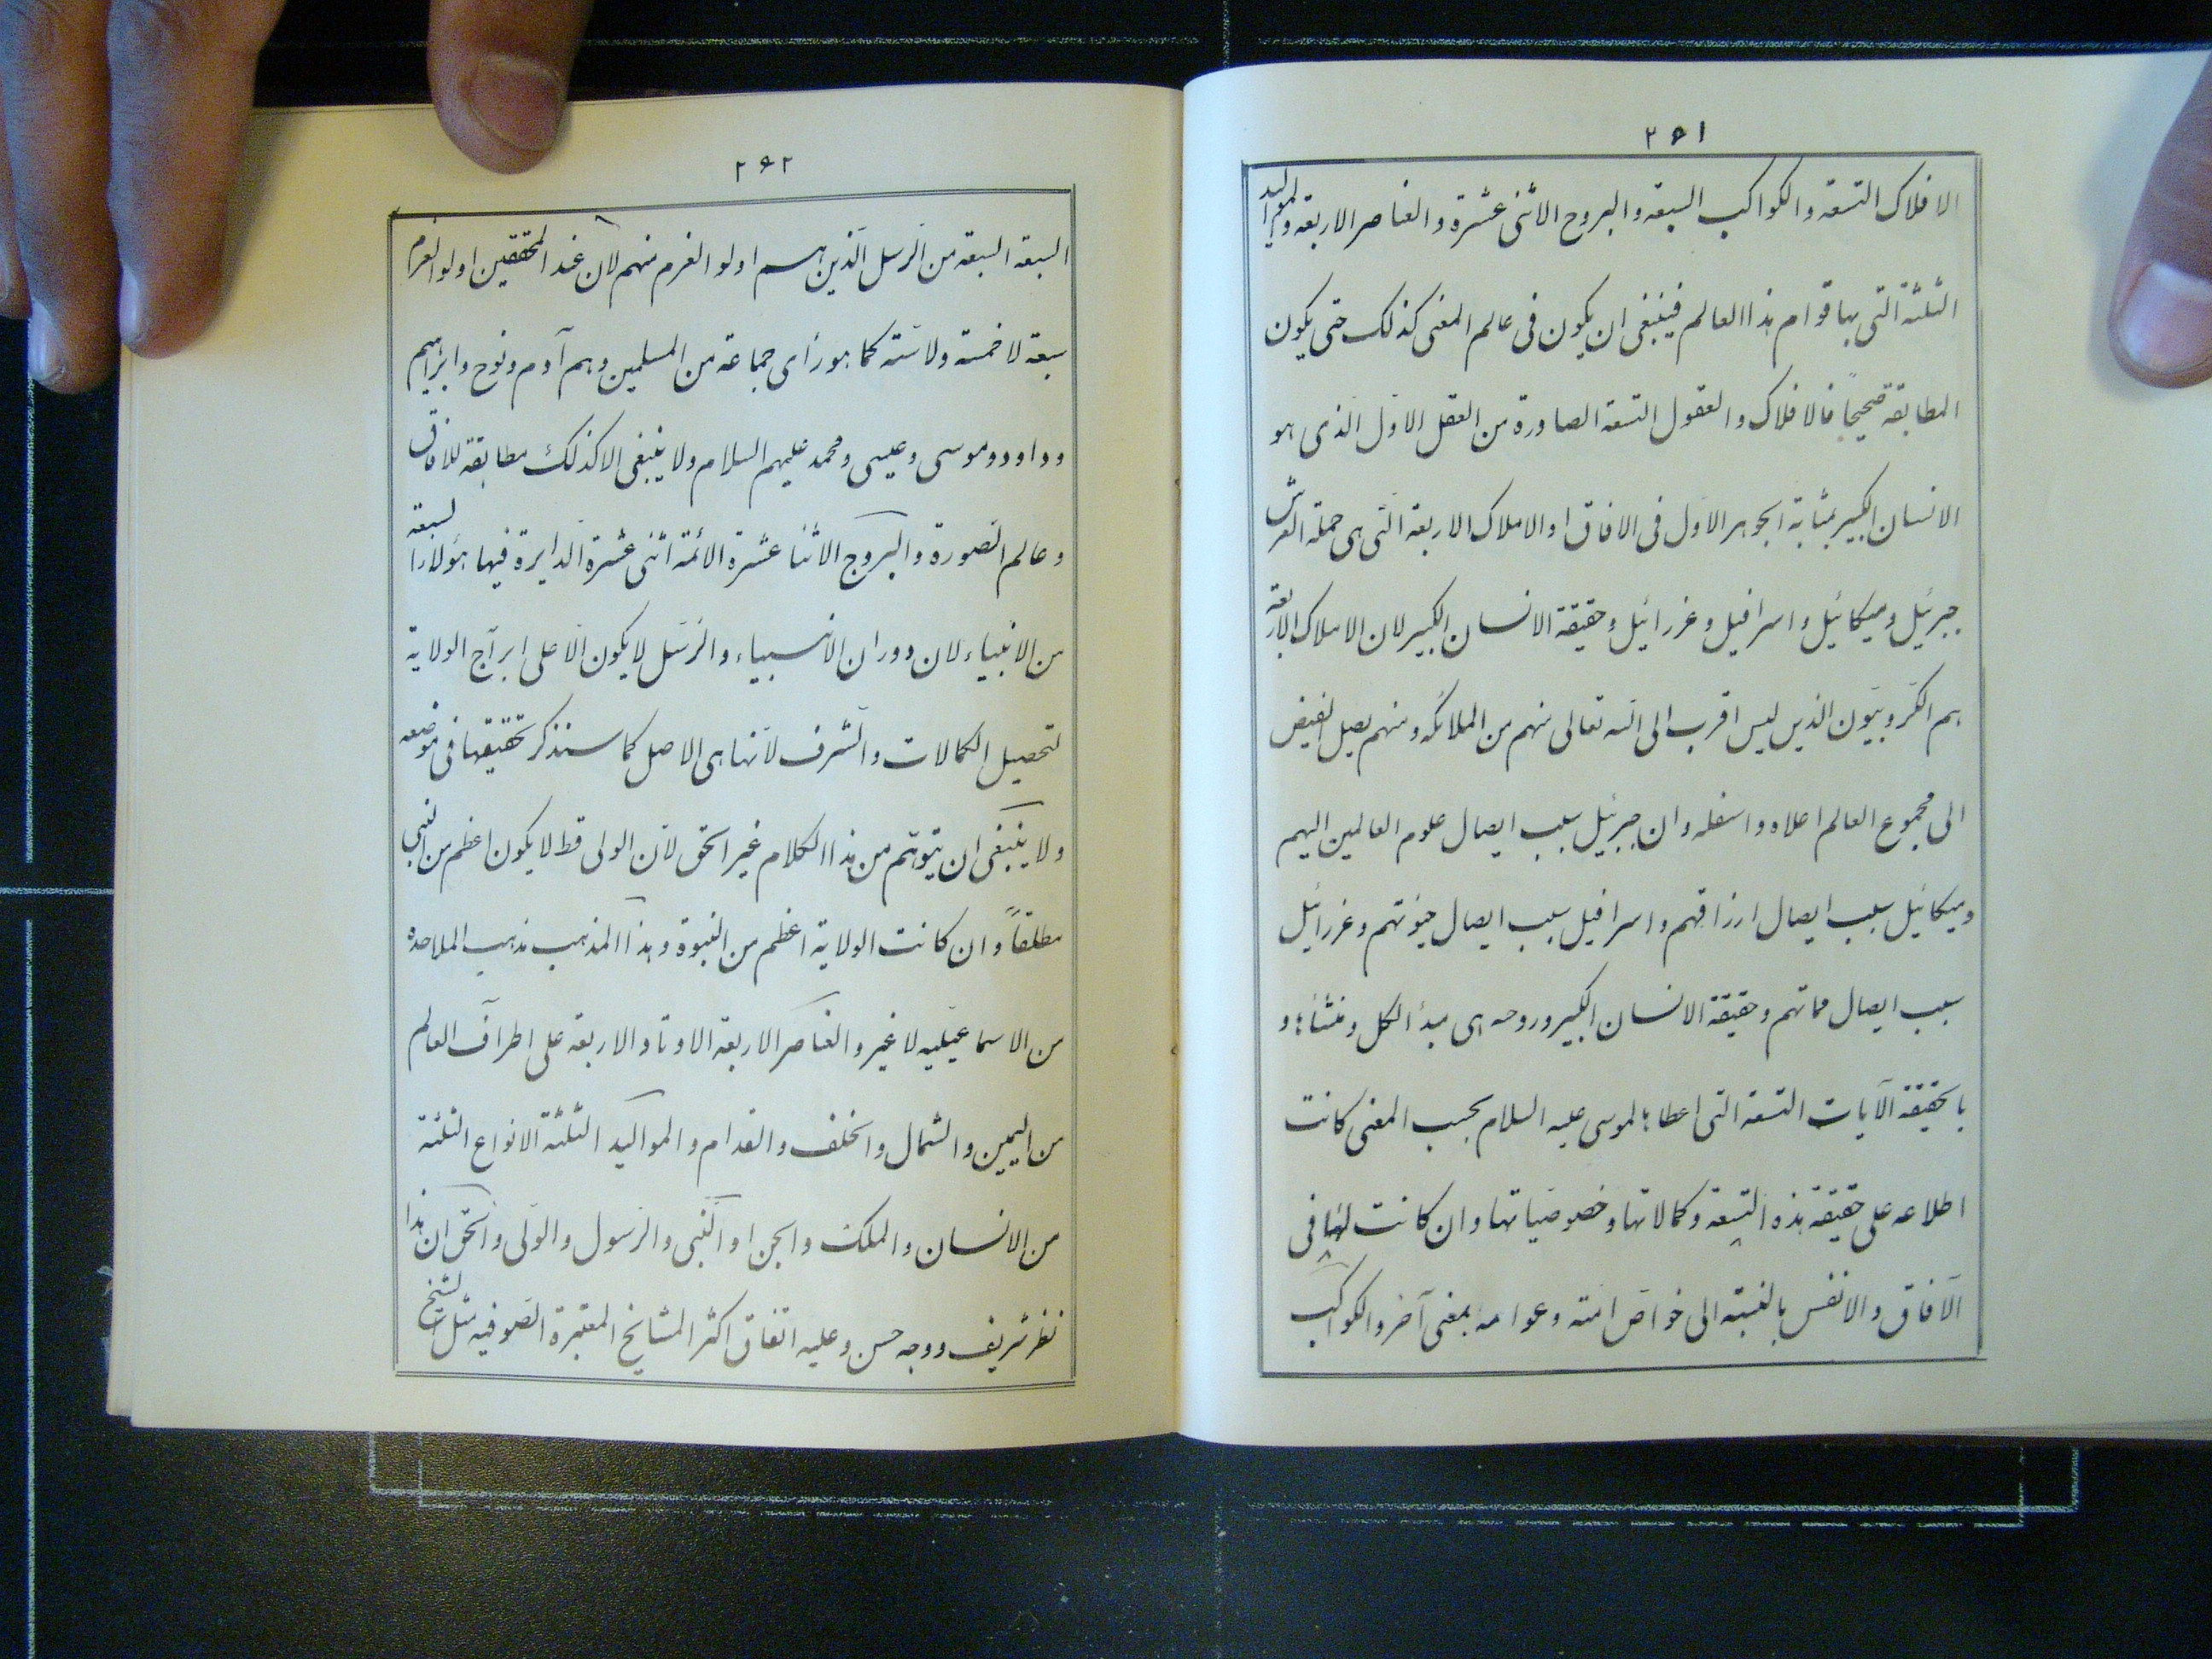 ۲۶۱
الافلاک التسعه والکواکب السبعه والبروج الاثنی عشرة والعناصر الاربعه والموالید
الثلثة التی بها قوام هذا العالم فینبغی ان یکون فی عالم المعنی کذلک حتی یکون
المطابقه صحیحاً فالافلاک والعقول التسعة الصادرة من العقل الاوّل الّذی هو
الانسان الکبیر بمثابة الجوهر الاوّل فی الافاق او الاملاک الاربعة الّتی هی حملة العرش
جبرئیل ومیکائیل واسرافیل وعزرائیل وحقیقة الانسان الکبیر لان الاملاک الاربعة
هم الکرّوبیّون الذین لیس اقرب الی الله تعالی منهم من الملائکه ومنهم یصل الفیض
الی مجموع العالم اعلاه واسفله وان جبرئیل سبب ایصال علوم العالمین الیهم
ومیکائیل سبب ایصال ارزاقهم واسرافیل سبب ایصال حیوتهم وعزرائیل
سبب ایصال مماتهم وحقیقة الانسان الکبیر وروحه هی مبدأ الکل ومنشأه و
بالحقیقة الآیات التسعة التی اعطاه لموسی علیه السلام بحسب المعنی کانت
اطلاعه علی حقیقة هذه التسعة وکمالاتها وخصوصّیاتها وان کانت لها فی
الآفاق والانفس بالنسبته الی خواصّ امّته وعوامه بمعنی آخر والکواکب
۲۶۲
السبعة السبعة من الرّسل الّذین هم اولو العزم منهم لان عند المحققین اولو العزم
سبعة لا خمسة ولا ستّة کما هو رأی جماعة من المسلمین وهم آدم ونوح وابراهیم
وداود وموسی وعیسی ومحمد علیهم السلام ولا ینبغی الا کذلک مطابقة للافاق
وعالم الصّورة والبروج الاثنا عشرة الأئمة اثنی عشرة الدایرة فیها هؤلاء السبعة
من الانبیاء لان دوران الانبیاء والرّسل لا یکون الّا علی ابراج الولایة
لتحصیل الکمالات والشّرف لأنها هی الاصل کما سنذکر تحقیقها فی موضعه
ولا ینبغی ان یتوهّم من هذا الکلام غیر الحق لانّ الولی قط لا یکون اعظم من النبی
مطلقاً وان کانت الولایة اعظم من النبوة وهذا المذهب مذهب الملاحده
من الاسماعیلیه لا غیر والعناصر الاربعة الاوتاد الاربعة علی اطراف العالم
من الیمین والشمال والخلف والقدام والموالید الثلثة الانواع الثلثة
من الانسان والملک والجن او النّبی والرّسول والولّی والحق ان هذا
نظر شریف ووجه حسن وعلیه اتفاق اکثر المشایخ المعتبرة الصّوفیه مثل الشیخ